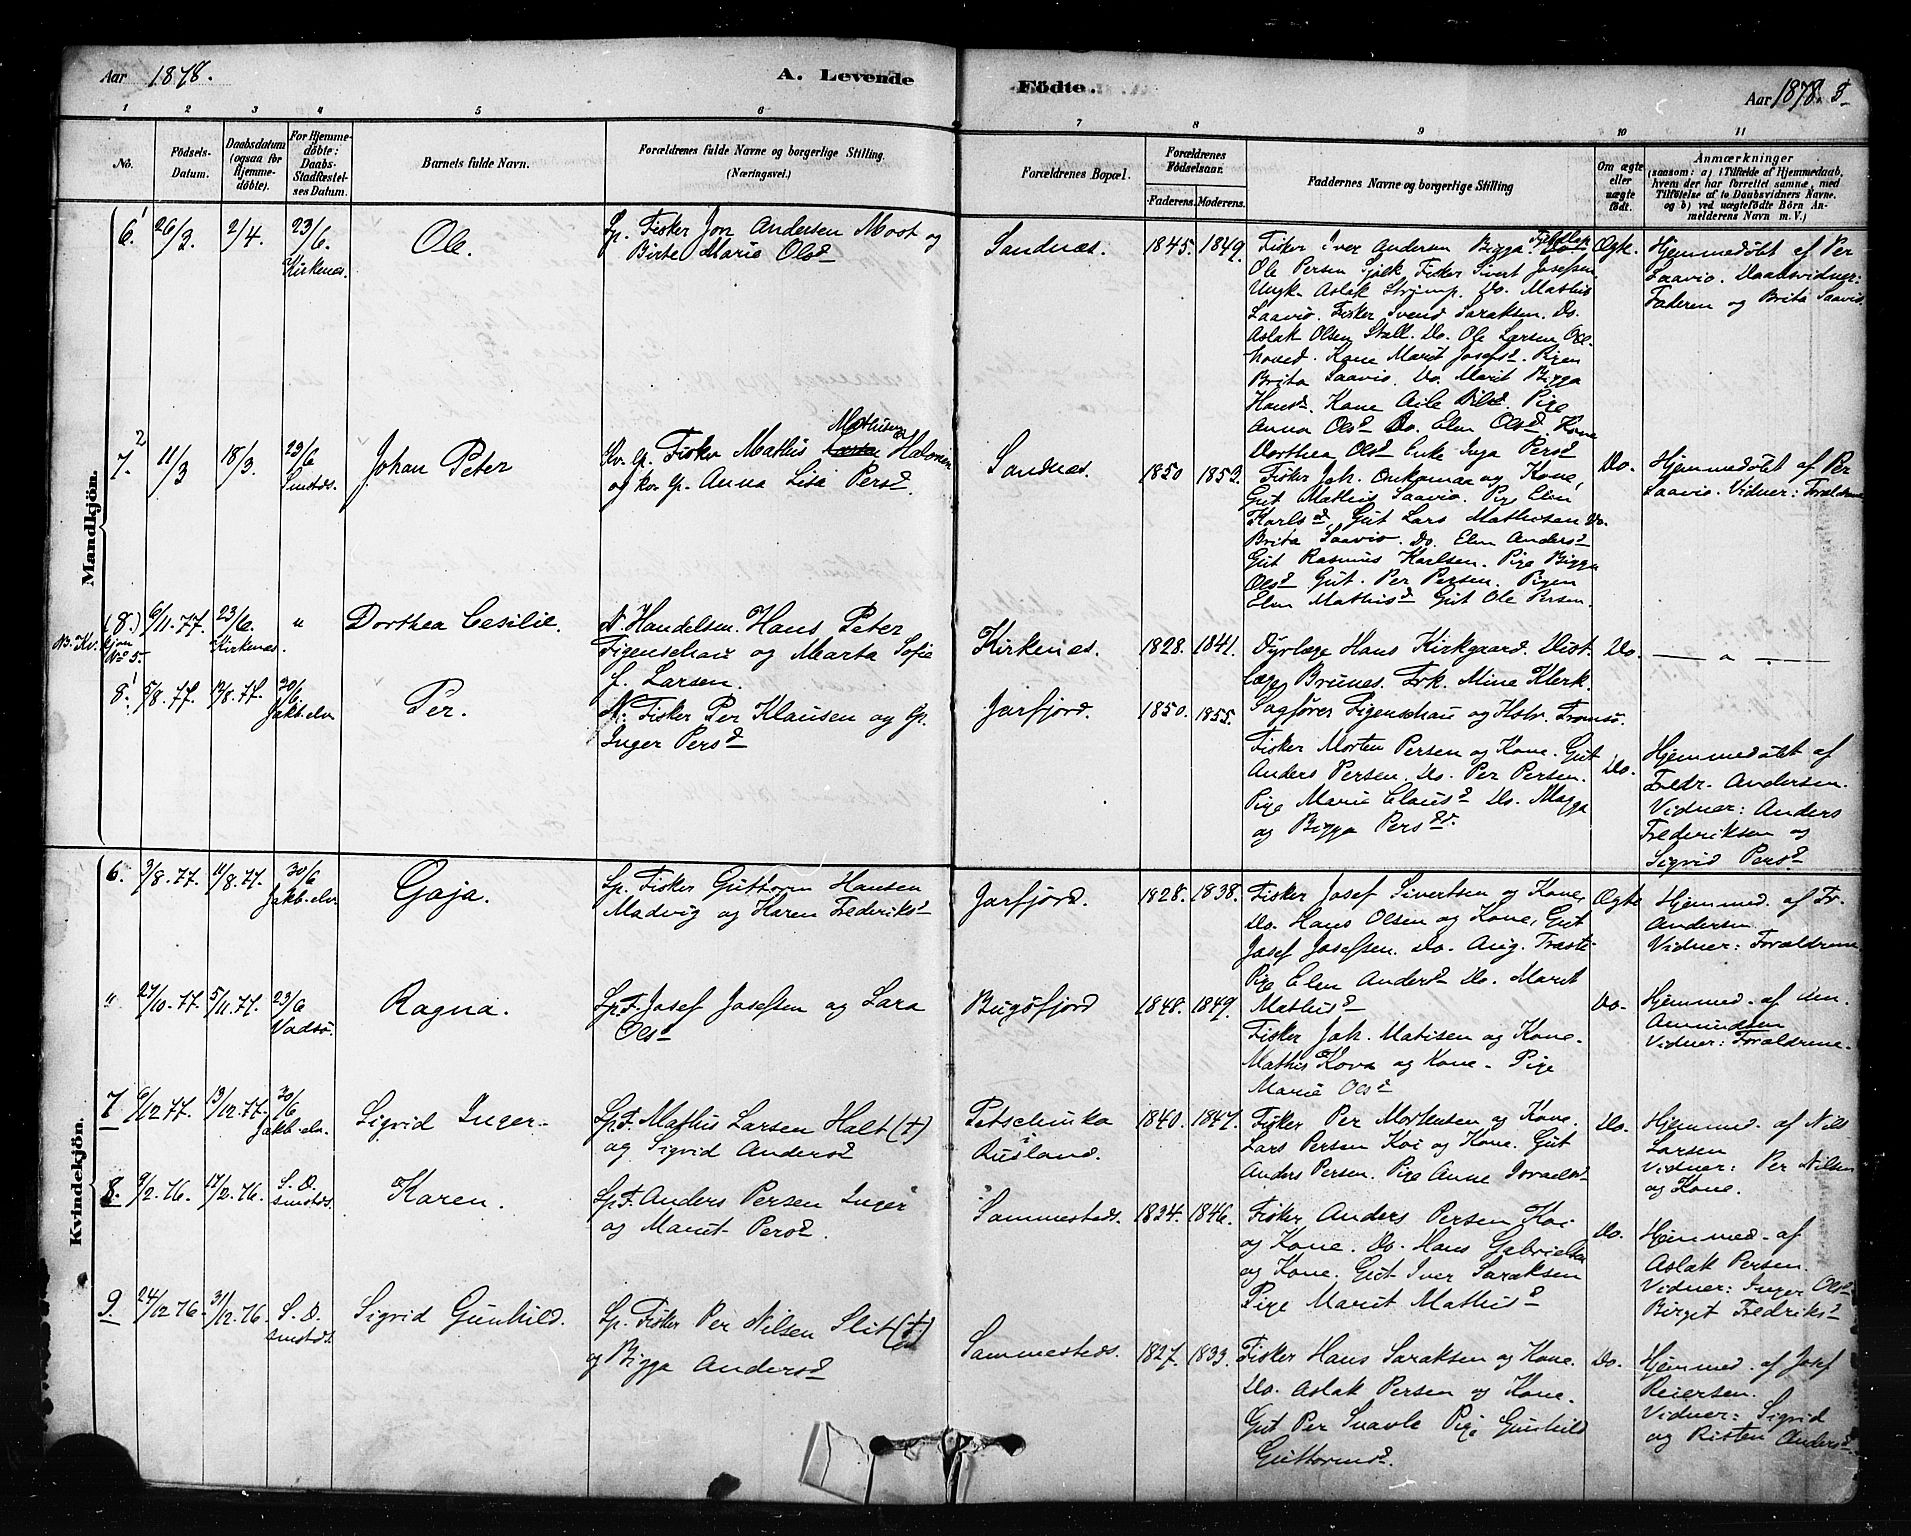 Aar 1878.
A. Levende
Fødte.
Aar 1878.
1 2 3 4 5 6 7 8 9 10 11
No.
Fødsels-
Datum.
Daabsdatum
(ogsaa for
Hjemme-
døbte).
For Hjemme-
døbte:
Daabs-
Stadfæstel-
ses Datum.
Barnets fulde Navn.
Forældrenes fulde Navne og borgerlige Stilling.
(Næringsvei.)
Forældrenes Bopæl.
Forældrenes
Fødselsaar.
Faderens. Moderens.
Faddernes Navne og borgerlige Stilling
Om ægte
eller
uægte
født.
Anmærkninger
(saasom: a) i Tilfælde af Hjemmedaab,
hvem der har forrettet samme, med
Tilføielse af to Daabsvidners Navne,
og b) ved uægtefødte Börn An-
melderens Navn m. V.)
Mandkjön.
6. 26/3 2/4 23/6 Kirkenes.
Ole.
Lp. Fisker Jon Andersen Moot og
Birte Marie Olsd
Sandnæs. 1845. 1849.
Fisker Iver Andersen Bigga
Ole Persen Fisker Sivert Josefsen
Ungk. Aslak Strimp. Do. Mathis
Saavio. Fisker Svend Saraksen. Do.
Aslak Olsen Stall. Do. Ole Larsen
Kone Marit Josefsd. Pigen
Brita Saavio. Do. Marit Bigga
Hansd. Kone
Anna Olsd Do. Elen Olsd Kone
Dorthea Olsd Enke Inga Persd
Hjemmedøbt af Per
Saavio. Daabsvidner:
Faderen og Brita Saavio
7. 11/3 18/3 23/6
Johan Peter
Kv. Gp. Fisker Mathis Mathisen Halonen
og kv. Gp. Anna Lisa Persd.
Sandnæs. 1850 1853.
Fisker Joh. og Kone,
Gut Mathis Saavio. Pige Elen
Karlsd, Gut Lars Mathisen Do.
Brita Saavio. Do. Elen Andersd
Gut Rasmus Karlsen. Pige Bigga
Olsd Gut. Per Persen. Pigen
Elen Mathisd Gut Ole Persen.
Do.
Hjemmedøbt af Per
Saavio. Vidner: Forældrene
NB. Kv.kjøn No 5.
(8.) 6/11.77. 23/6. Kirkenes. "
Dorthea Cesilie.
N. Handelsm. Hans Peter
Figenschau og Marta Sofie
f. Larsen.
Kirkenæs. 1828. 1841.
Dyrlæge Hans Kirkgaard. Dist.
Læge Brunes. Frk. Mine Klerk.
Sagfører Figenschau og Hstr. Tromsø.
Do.
— " —
8. 5/8.77. 12/8.77. 30/6 Jakb.elv.
Per.
N. Fisker Per Klausen og Gp.
Inger Persd
Jarfjord. 1850. 1855.
Fisker Morten Persen og Kone. Gut
Anders Persen. Do. Per Persen.
Pige Marie Clausd Do. Magga
og Bigga Persdr.
Do.
Hjemmedøbt af
Fredr. Andersen.
Vidner: Anders
Frederiksen og
Sigrid Persd
Kvindekjön.
6. 3/8.77. 11/8.77. 30/6 Jakb.elv.
Gaja.
Lp. Fisker Guttorm Hansen
Madvig og Karen Frederiksd
Jarfjord. 1828. 1838.
Fisker Josef Sivertsen og Kone,
Do. Hans Olsen og Kone, Gut
Josef Josefsen. Do. Aug. Trasti
Pige Elen Andersd Do. Marit
Mathisd
Ægte
Hjemmed. af Fr.
Andersen.
Vidner: Forældrene
" 27/10.77. 5/11.77. 23/6 Vadsø.
Ragna.
Lp. F. Josef Josefsen og Lara
Olsd
Bugøfjord 1848. 1849.
Fisker Joh. Matisen og Kone.
Mathis Kova og Kone. Pige
Marie Olsd
Do.
Hjemmed. af
Amundsen
Vidner: Forældrene.
7 6/12.77. 13/12.77. 30/6 Jakb.elv.
Sigrid Inger.
Lp. F. Mathis Larsen Halt (†)
og Sigrid Andersd
Petschinka
i
Rusland. 1840. 1847.
Fisker Per Mortensen og Kone.
Lars Persen Koi og Kone. Gut
Anders Persen. Pige Anne Israelsd
Do.
Hjemmed. af Nils
Larsen
Vidner: Per Nilsen
og Kone.
8. 9/2.76. 17/2.76. S. D.
Karen.
Lp. F. Anders Persen Inger
og Marit Persd.
Sammesteds. 1834. 1846.
Fisker Anders Persen Koi
og Kone. Do. Hans Gabrielsen
og Kone. Gut Iver Saraksen
Pige Marit Mathisd
Do.
Hjemmed. af
Aslak Persen.
Vidner: Inger Olsd
Birget Fredriksd
9 24/12.76. 31/12.76. S. D.
Sigrid Gunhild.
Lp. Fisker Per Nilsen Slit (†)
og Bigga Andersd
Sammesteds. 1827. 1833.
Fisker Hans Saraksen og Kone.
Do. Aslak Persen og Kone.
Gut Per Snavle Pige Gunhild
Guttormsd.
Do.
Hjemmed. af Josef
Reiersen.
Vidner: Sigrid
og Risten Andersd